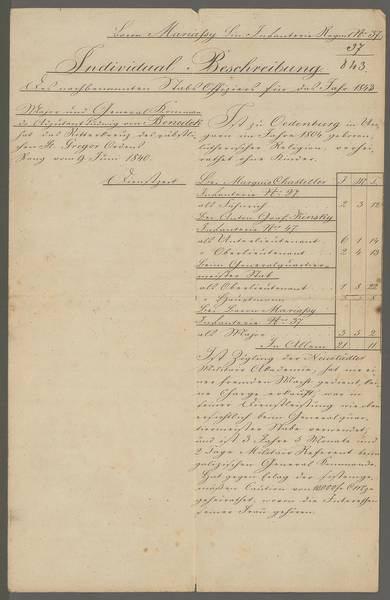 Baron Mariássy Lin. Infanterie Regmt No 37.
37
843.
Individual-Beschreibung
Des nachbenannten Stabs Offiziers für das Jahr 1843
Major und General Komman-
do Adjutant Ludwig von Benedek
hat das Ritterkreuz des päbstli-
chen St. Gregor Ordens
Rang vom 9 Juni 1840.
Ist zu Oedenburg in Un-
garn im Jahre 1804 geboren,
lutherischer Religion, verhei-
rathet ohne Kinder.
Dienstzeit
Bei Marquis Chasteller J M T
Infanterie No 27
als Fähnrich 2 3 12
Bei Anton Graf Kinsky
Infanterie No 47.
als Unterlieutenant 6 1 14
" Oberlieutenant 2 4 13
beim Generalquartier-
meister Stab
als Oberlieutenant 1 8 22
" Hauptmann 5 5 8
Bei Baron Mariássy
Infanterie No 37
als Major 3 5 2
In Allem 21 11
Ist Zögling der Neustädter
Militär Akademie, hat nie ei-
ner fremden Macht gedient, kei-
ne Charge erkauft, war in
seiner Dienstleistung wie oben
ersichtlich beim Generalquar-
tiermeister Stabe verwendet,
und ist 3 Jahre 5 Monate und
2 Tage Militair Referent beim
galizischen General Kommando.
Hat gegen Erlag der sistemge-
mäßen Caution von 10000 f CMze
geheirathet, wovon die Interessen
seiner Frau gehören.